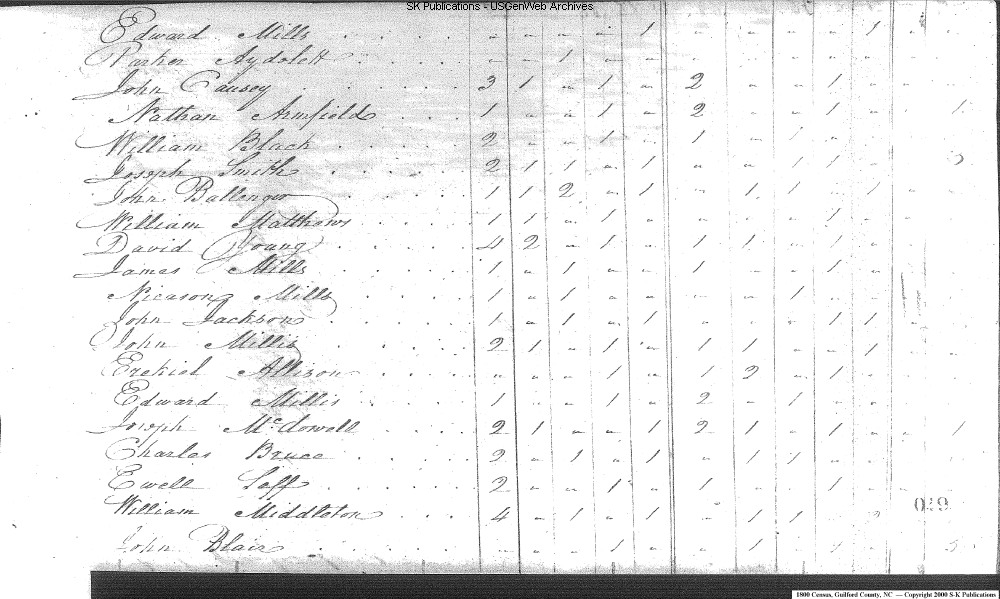 SK Publications - USGenWeb Archives
Edward Mills - - - - 1 - - - - 1 - -
Parker Aydolett - - 1 - - - - - - - - -
John Causey 3 1 - 1 - 2 - - 1 - - -
Nathan Armfield 1 - - 1 - 2 - - 1 - - 1
William Black 2 - - 1 - 1 - 1 - - -
Joseph Smith 2 1 1 - 1 - - 1 1 - -
John Ballenger 1 1 2 - 1 - 1 1 - 1 -
William Matthews 1 1 - 1 - - - - 1 - -
David Young 4 2 - 1 - 1 1 - 1 - -
James Mills 1 - 1 - - 1 - - 1 - -
Nicason Mills 1 - 1 - - - - 1 - - -
John Jackson 1 - 1 - 1 - - - 1 1 -
John Millis 2 1 - 1 - 1 1 - - 1 -
Ezekiel Allison - - - 1 - 1 2 - 1 - -
Edward Millis 1 - - 1 - 2 - 1 - - -
Joseph McDowell 2 1 - - 1 2 1 - 1 - - 1
Charles Bruce 2 - 1 - 1 - 1 1 - 1 -
Ewell 2 - - 1 - 1 - - 1 - -
William Middleton 4 - 1 - 1 - 1 1 - 2 -
John Blair - - - 1 - - 1 - 1 - - 5
1800 Census, Guilford County, NC — Copyright 2000 S-K Publications